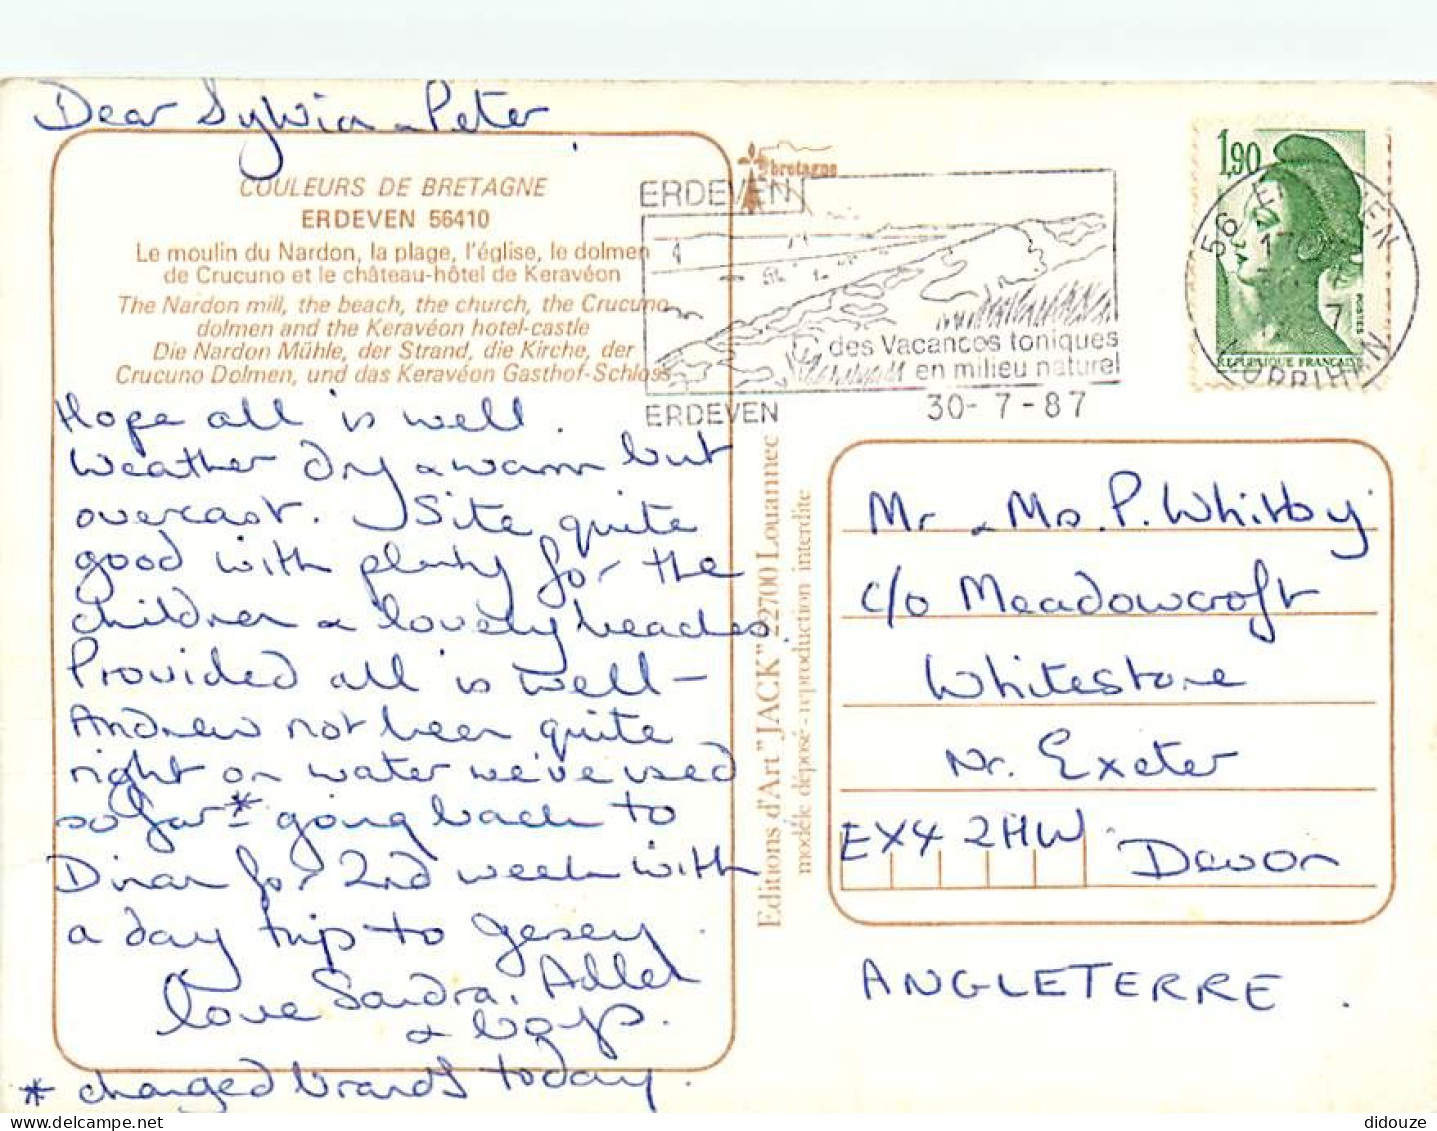 Dear Sylvia & Peter,
COULEURS DE BRETAGNE
ERDEVEN 56410
Le moulin du Nardon, la plage, l'église, le dolmen
de Crucuno et le château-hôtel de Keravéon
The Nardon mill, the beach, the church, the Crucuno
dolmen and the Keravéon hotel-castle
Die Nardon Mühle, der Strand, die Kirche, der
Crucuno Dolmen, und das Keravéon Gasthof-Schloss
Hope all is well.
Weather dry & warm but
overcast. Site quite
good with plenty for the
children & lovely beaches.
Provided all is well –
Andrew not been quite
right on water we've used
so far* – going back to
Dinan for 2nd week with
a day trip to Jersey.
love Sandra,
& boys.
* changed brands today.
bretagne
ERDEVEN
des Vacances toniques
en milieu naturel
ERDEVEN
30-7-87
1,90
POSTES
REPUBLIQUE FRANCAISE
56 ERDEVEN
MORBIHAN
Editions d'Art "JACK" 22700 Louannec
modèle déposé - reproduction interdite
Mr & Ms. P. Whitby
c/o Meadowcroft
Whitestone
Nr. Exeter
EX4 2HW Devon
ANGLETERRE.
didouze